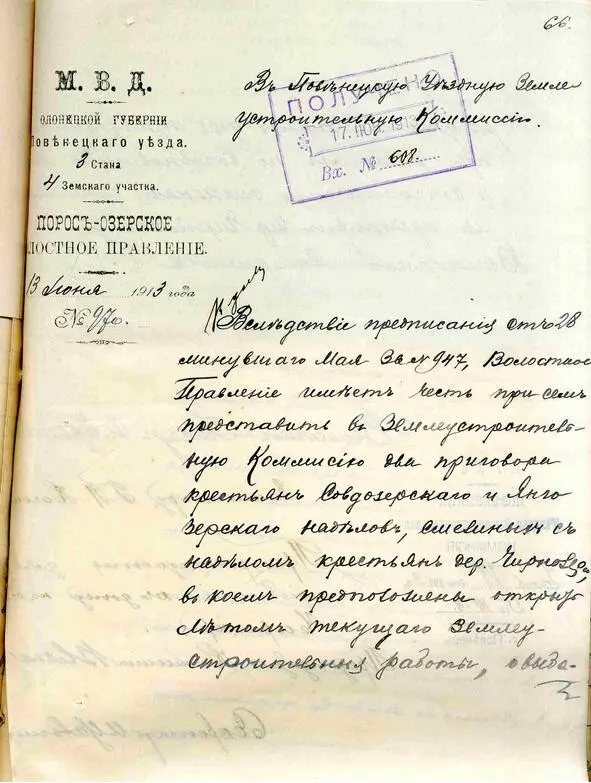 66.
М. В. Д.
ОЛОНЕЦКОЙ ГУБЕРНІИ
Повѣнецкаго уѣзда.
3 Стана
4 Земскаго участка.
ПОРОСЪ-ОЗЕРСКОЕ
ЛОСТНОЕ ПРАВЛЕНІЕ.
13 Іюня 1913 года
№ 970.
Въ Повѣнецкую Уѣздную Земле
устроительную Коммиссію.
ПОЛУЧЕНО
17 ІЮН. 1913
Вх. № 608.
Вслѣдствіе предписанія отъ 28
минувшаго Мая за № 947, Волостное
Правленіе имѣетъ честь при семъ
представить въ Землеустроитель-
ную Коммисію два приговора
крестьянъ Совдозерскаго и Янго
зерскаго надѣловъ, смежныхъ съ
надѣломъ крестьянъ дер.
въ коемъ предположены открыть
лѣтомъ текущаго Землеу-
строительныя работы, о выда-